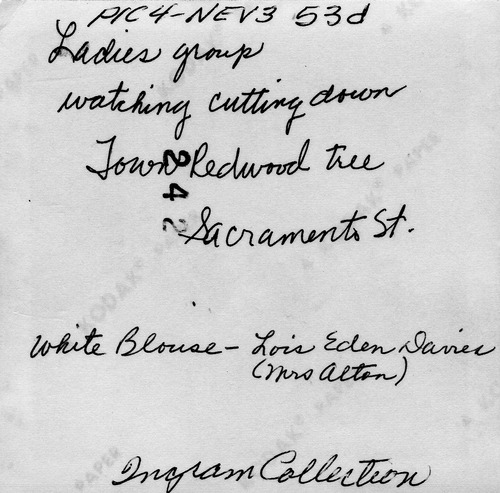 PIC4-NEV3 53d
Ladies group
watching cutting down
Town Redwood tree
242
Sacramento St.
White Blouse - Lois Eden Davies
(Mrs Alton)
Ingram Collection
KODAK PAPER